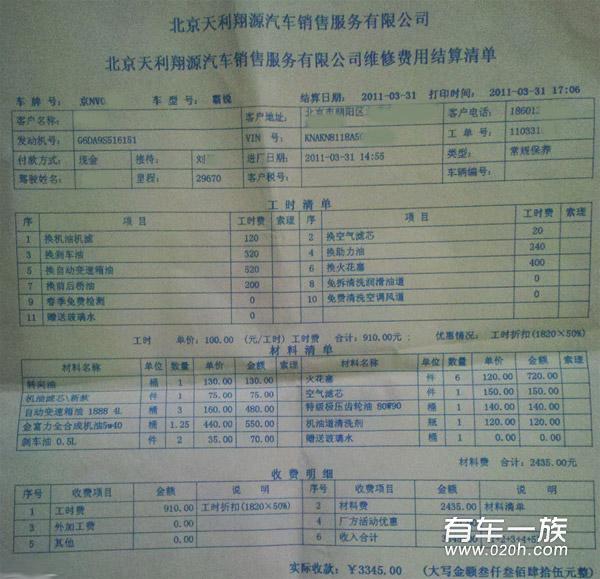 北京天利翔源汽车销售服务有限公司
北京天利翔源汽车销售服务有限公司维修费用结算清单
车牌号: 京NVC 车型号: 霸锐 结算日期: 2011-03-31 打印时间: 2011-03-31 17:06
客户名称: 客户地址: 北京市朝阳区 客户电话: 18601
发动机号: G6DA9S516151 VIN 号: KNAKN8118A5 工单号: 110331
付款方式: 现金 接待: 刘 进厂日期: 2011-03-31 14:55 类型: 常规保养
驾驶姓名: 里程: 29670 客户税号: 车辆编号:
工时清单
序 项目 工时费 索理 序 项目 工时费 索理
1 换机油机滤 120 2 换空气滤芯 20
3 换刹车油 320 4 换助力油 240
5 换自动变速箱油 520 6 换火花塞 400
7 换前后桥油 200 8 免拆清洗润滑油道 0
9 春季免费检测 0 10 免费清洗空调风道 0
11 赠送玻璃水 0
工时 单价: 100.00 (元/工时) 工时费 合计: 910.00元; 优惠情况: 工时折扣(1820×50%)
材料清单
材料名称 单位 数量 单价 金额 索理 材料名称 单位 数量 单价 金额 索理
转向油 桶 1 130.00 130.00 火花塞 件 6 120.00 720.00
机油滤芯\新款 件 1 75.00 75.00 空气滤芯 件 1 150.00 150.00
自动变速箱油 1888 4L 桶 3 160.00 480.00 特级极压齿轮油 80W90 桶 1 140.00 140.00
金富力全合成机油5w40 桶 1.25 440.00 550.00 机油道清洗剂 瓶 1 120.00 120.00
刹车油 0.5L 件 2 35.00 70.00 赠送玻璃水 桶 1 0.00 0.00
材料费 合计: 2435.00元
收费明细
序号 收费项目 金额 说 明 序号 收费项目 金额 说 明
1 工时费 910.00 工时折扣(1820×50%) 2 材料费 2435.00 材料清单
3 外加工费 0.00 4 厂方活动优惠
5 其他 0.00 6 收入合计 1+2+3+4+5
实际收款: ¥3345.00 (大写金额叁仟叁佰肆拾伍元整)
有车一族
www.020h.com